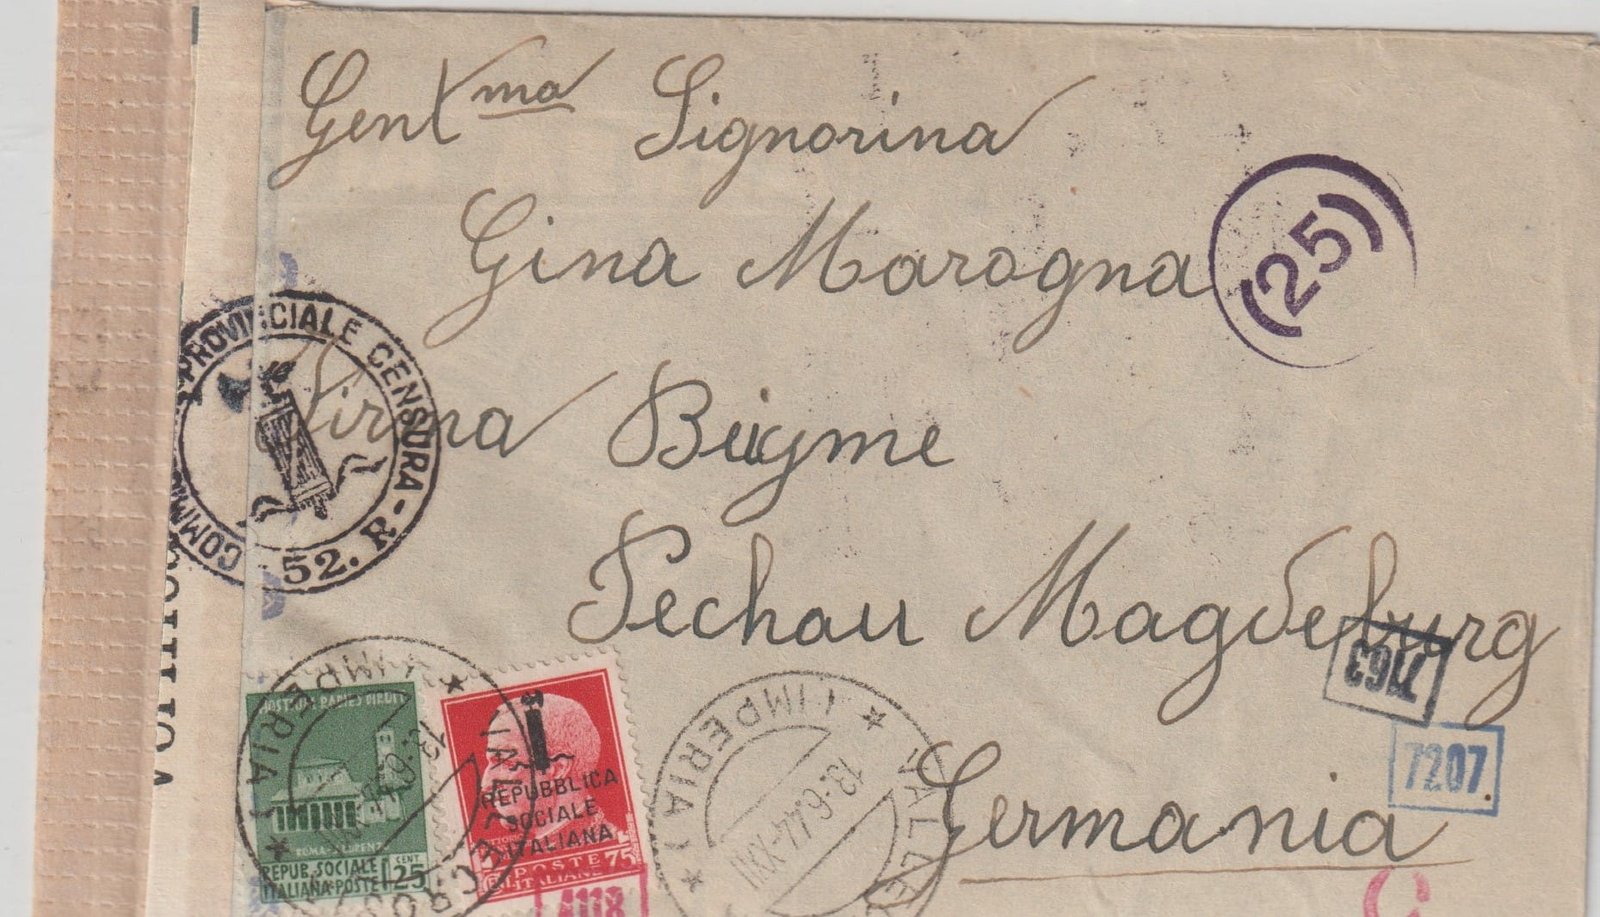 Gent ma Signorina
Gina Marogna
(25)
Firma Bügme
Pechau Magdeburg
Germania
PROVINCIALE CENSURA - 52. R.
7163
7207
HOSTIUM RABIES DIRUIT
ROMA - S. LORENZO
REPUB. SOCIALE
ITALIANA-POSTE
CENT. 25
REPUBBLICA
SOCIALE
ITALIANA
POSTE
ITALIANE
75
(IMPERIA)
13-6-44-XXII
4118
C